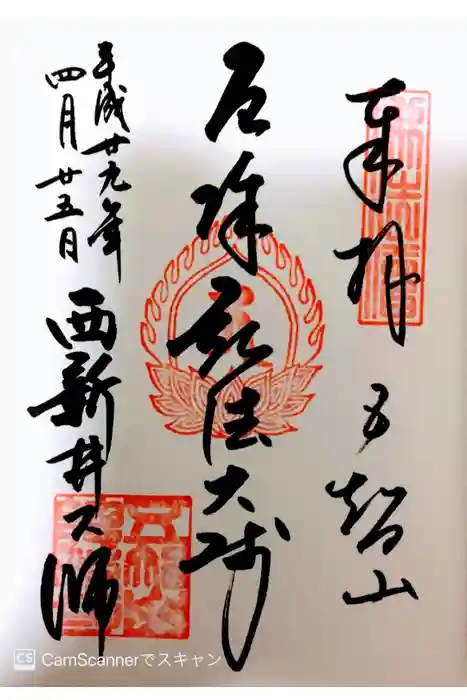 奉拝 五智山
厄除弘法大師
平成廿九年
四月廿五日
西新井大師
CS CamScannerでスキャン